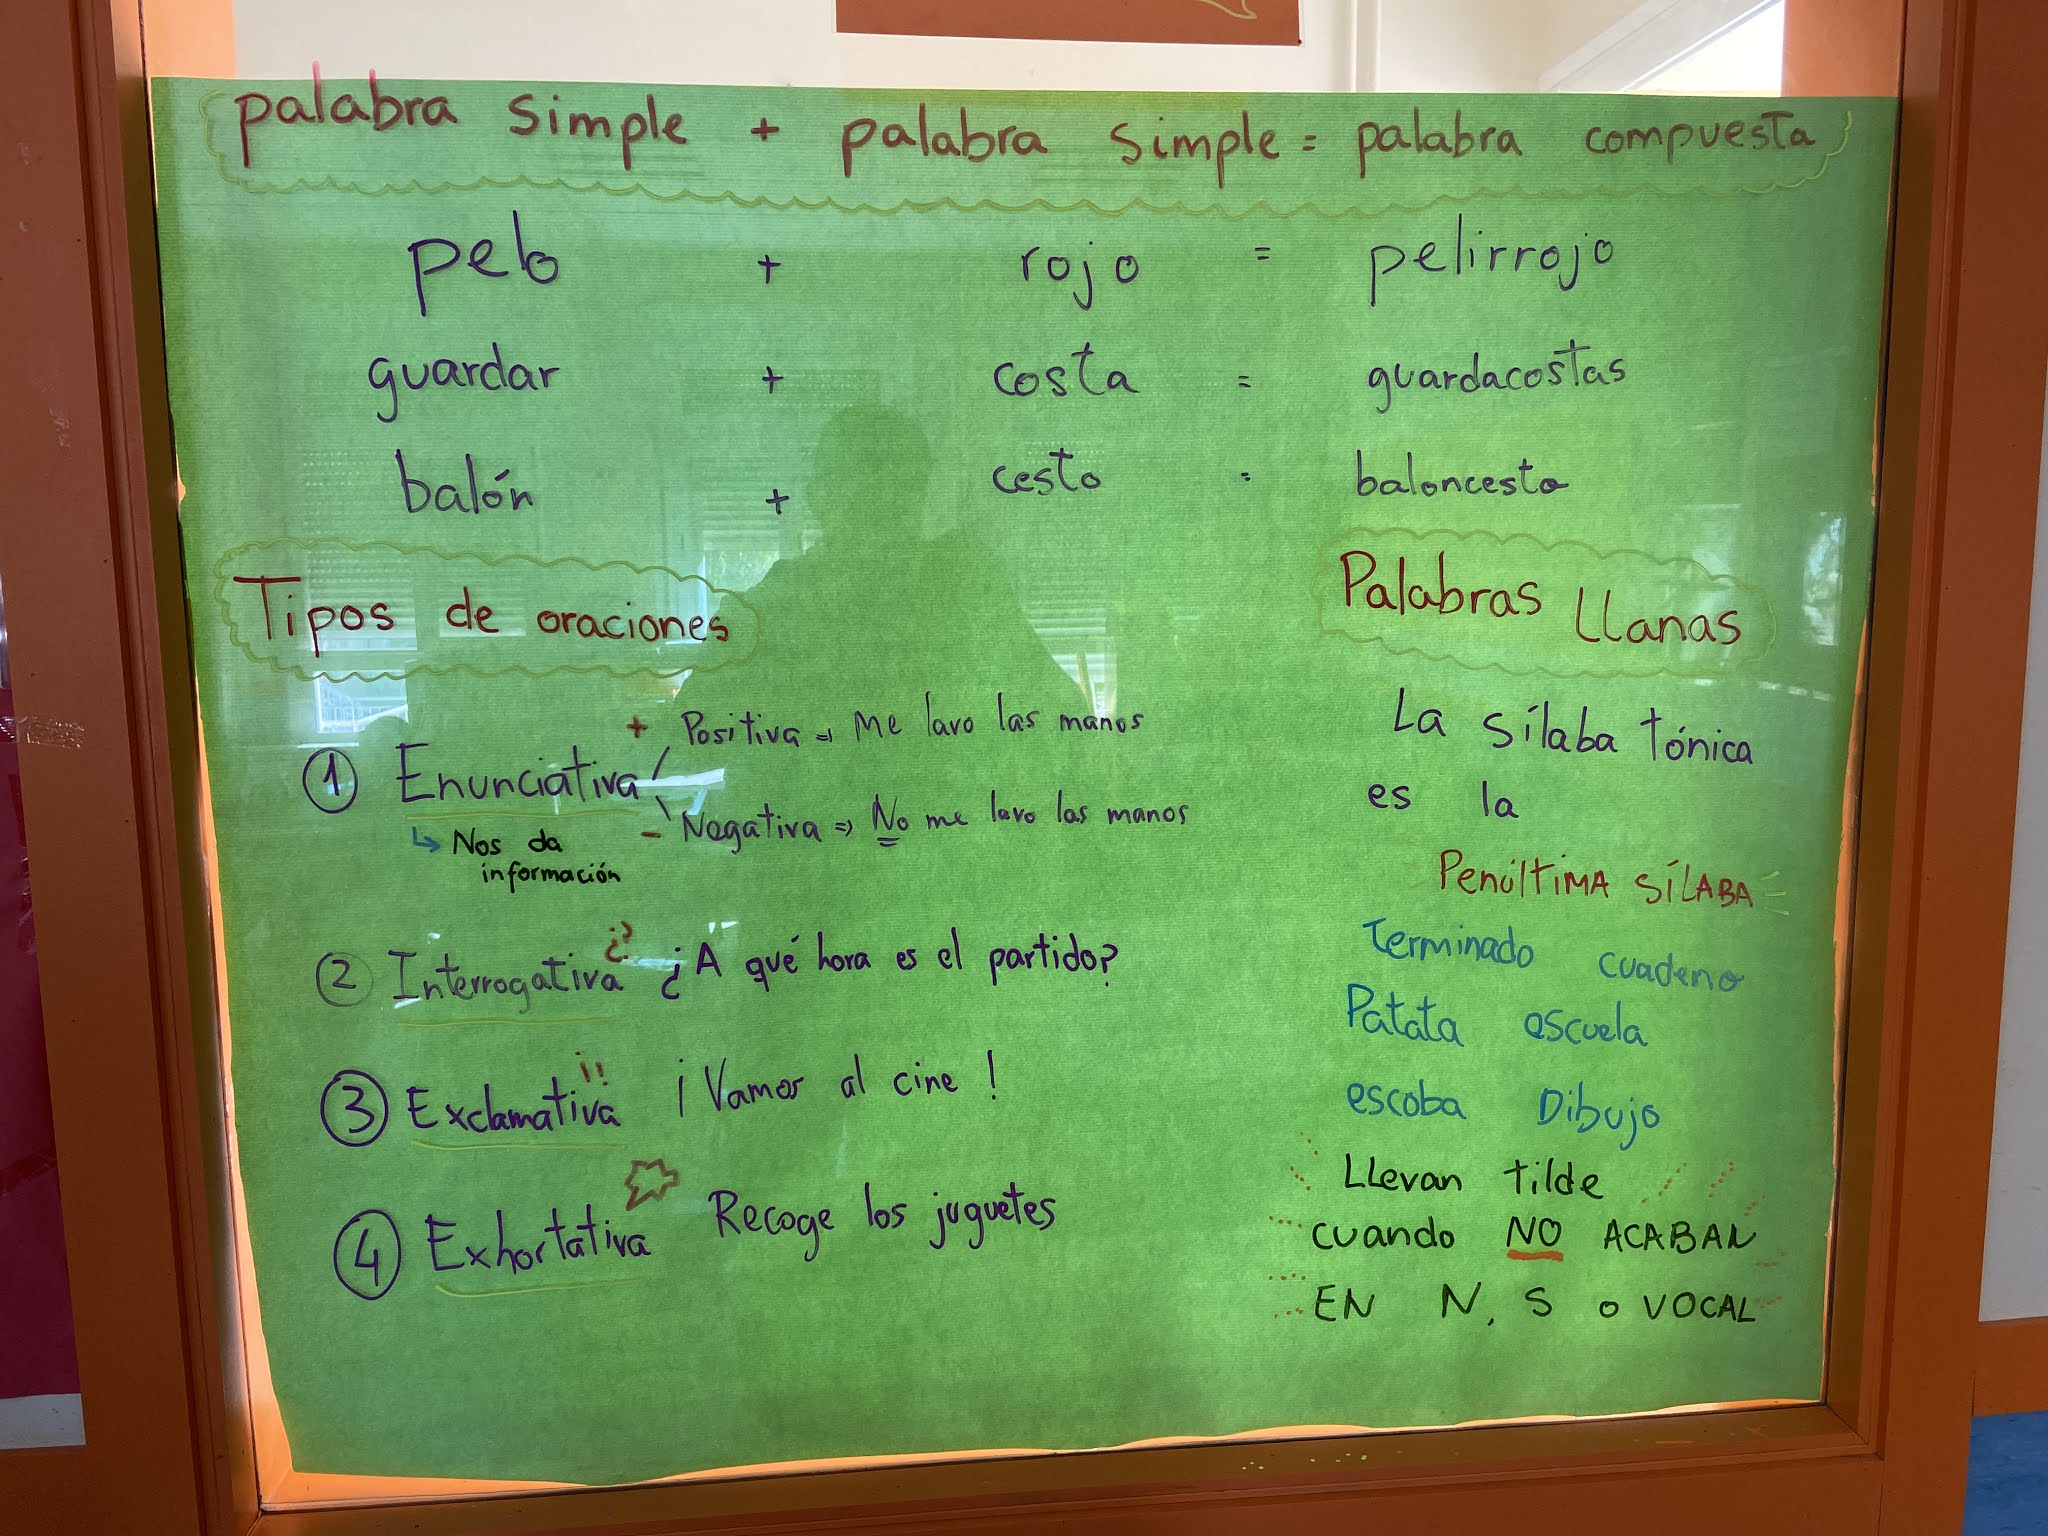 palabra simple + palabra simple = palabra compuesta
pelo + rojo = pelirrojo
guardar + costa = guardacostas
balón + cesto = baloncesto
Tipos de oraciones
+ Positiva => Me lavo las manos
1 Enunciativa
- Negativa => No me lavo las manos
↳ Nos da
información
2 Interrogativa ¿? ¿A qué hora es el partido?
3 Exclamativa ¡! ¡Vamos al cine!
4 Exhortativa Recoge los juguetes
Palabras Llanas
La sílaba tónica
es la
Penúltima SÍLABA
Terminado cuaderno
Patata escuela
escoba Dibujo
Llevan tilde
cuando NO ACABAN
EN N, S o VOCAL